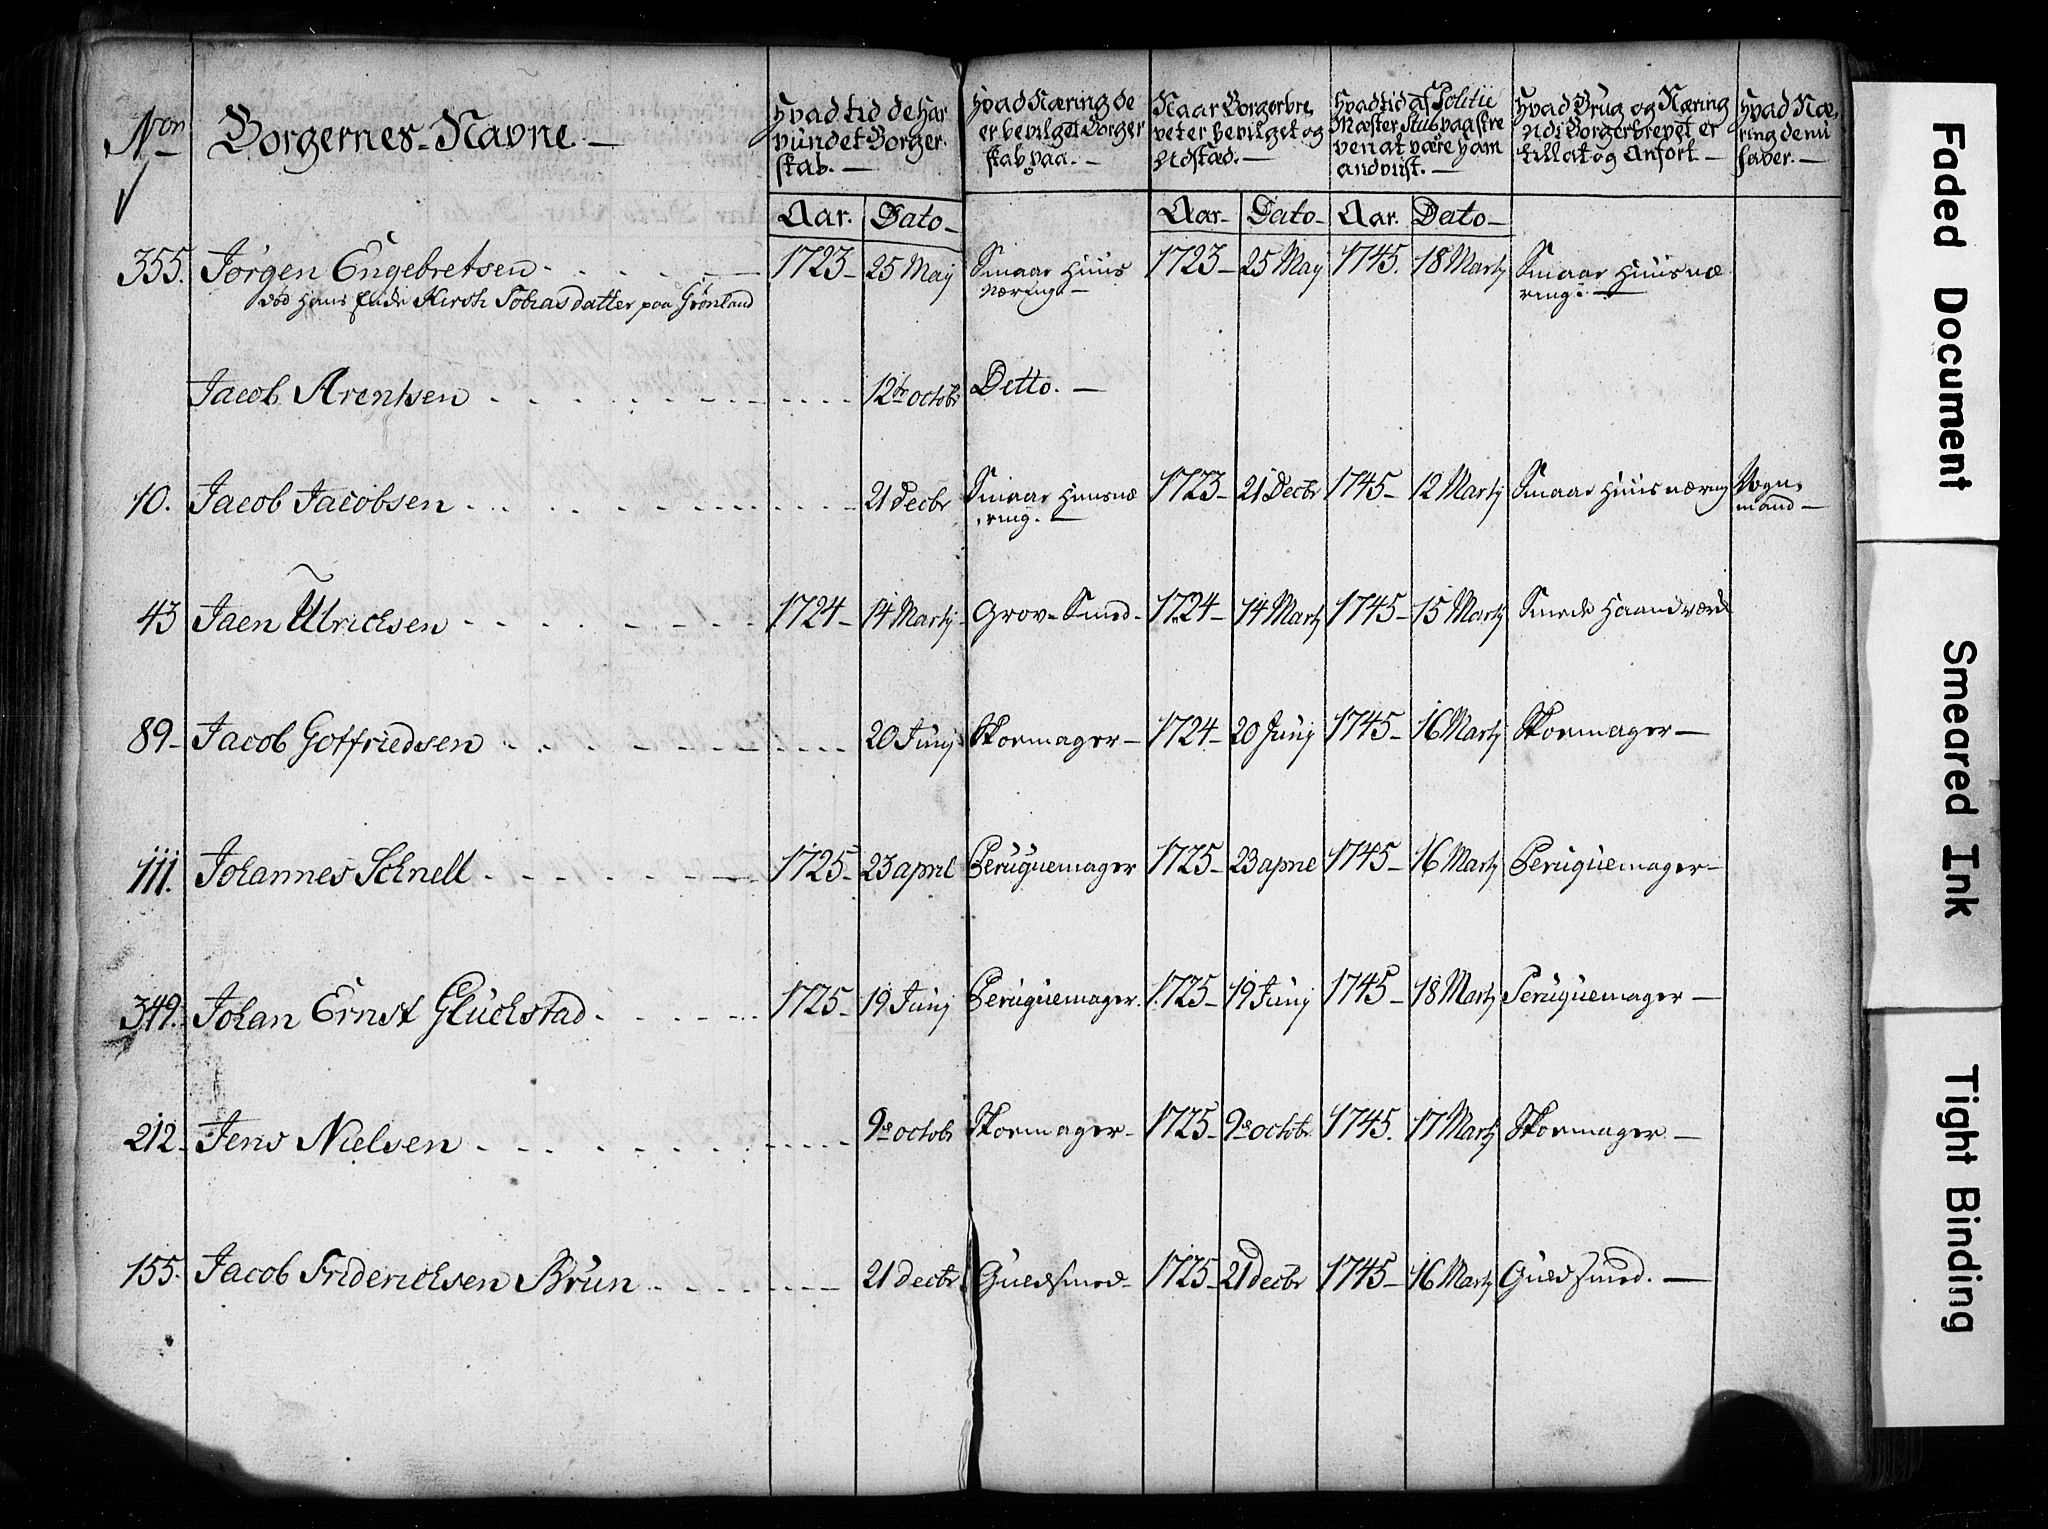 Nor Borgernes Navne. — Hvad tid de har vundet Borger skab. — Hvad Næring de er bevilget Borger skab paa. — Naar Borgerbre vet er bevilget og Udstæd. — Hvad tid af Politie Mæster Stub paaskre ven at være ham anvist. — Hvad Brug og Næring Udi Borgerbrevet er tillat og Anført — Hvad Næ ring de nu haver. —
Aar. Dato — Aar. Dato — Aar. Dato —
355. Jørgen Engebretsen 1723 — 25 May Smaar Huus næring. — 1723 — 25 May 1745. 18 Martj Smaar Huusnæ ring. —
død hans Enke Kirsti Tobiasdatter paa Grønland
Jacob Arentsen 12te octobr Detto. —
10. Jacob Jacobsen 21 Decbr Smaar Huusnæ ring. — 1723 — 21 Decbr 1745 — 12 Martj Smaar Huusnæring Vogn mand —
43 Jaen Ulrichsen 1724 — 14 Martj Grov-Smed — 1724 — 14 Martj 1745 — 15 Martj Smede Haandværk
89 — Jacob Gotfriedsen 20 Junij Skoemager — 1724 — 20 Junij 1745 — 16 Martj Skoemager —
111. Johannes Schnell 1725 — 23 april Peruquemager 1725 — 23 april 1745 — 16 Martj Peruquemager —
349. Johan Ernst Gluckstad 1725 — 19 Junij Peruquemager. 1725 — 19 Junij 1745 — 18 Martj Peruquemager —
212 — Jens Nielsen 9de octobr Skoemager — 1725 — 9de octobr. 1745. 17 Martj Skoemager —
155. Jacob Friderichsen Brun 21 Decbr Guldsmed — 1725 — 21 Decbr 1745 — 16 Martj Guldsmed. —
Faded Document
Smeared Ink
Tight Binding